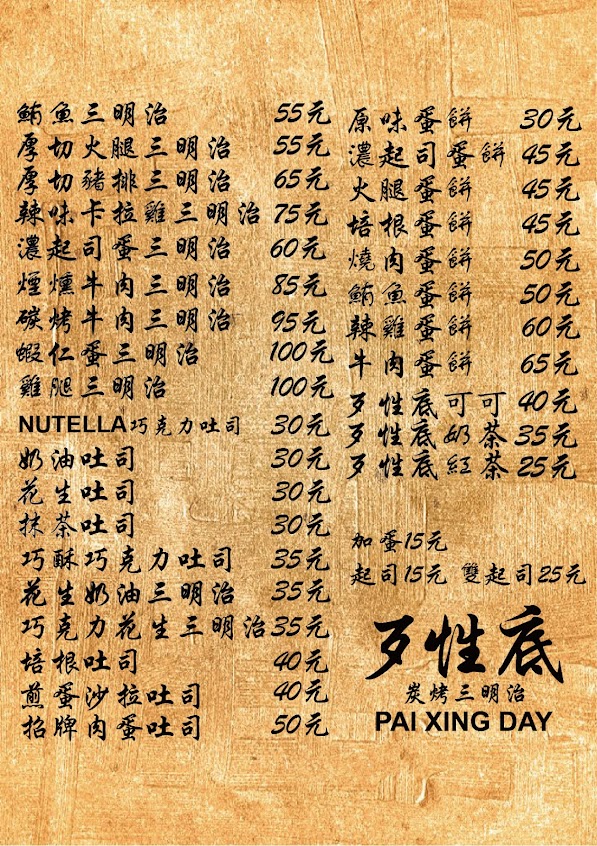 鮪魚三明治 55元
厚切火腿三明治 55元
厚切豬排三明治 65元
辣味卡拉雞三明治 75元
濃起司蛋三明治 60元
煙燻牛肉三明治 85元
碳烤牛肉三明治 95元
蝦仁蛋三明治 100元
雞腿三明治 100元
NUTELLA巧克力吐司 30元
奶油吐司 30元
花生吐司 30元
抹茶吐司 30元
巧酥巧克力吐司 35元
花生奶油三明治 35元
巧克力花生三明治 35元
培根吐司 40元
煎蛋沙拉吐司 40元
招牌肉蛋吐司 50元
原味蛋餅 30元
濃起司蛋餅 45元
火腿蛋餅 45元
培根蛋餅 45元
燒肉蛋餅 50元
鮪魚蛋餅 50元
辣雞蛋餅 60元
牛肉蛋餅 65元
歹性底可可 40元
歹性底奶茶 35元
歹性底紅茶 25元
加蛋15元
起司15元 雙起司25元
歹性底
炭烤三明治
PAI XING DAY